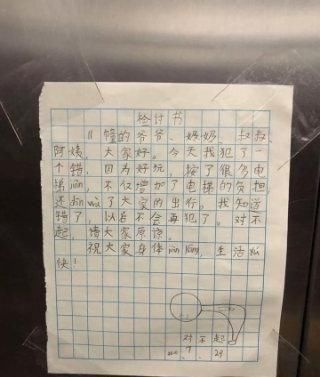 检讨书
11幢的爷爷、奶奶、叔叔、
阿姨，大家好。今天我犯了一
个错，因为好玩，按了很多电
梯jiàn，不仅增加了电梯的负担，
还dān wù了大家的出行。我知道
错了，以后不会再犯了。对不
起，请大家原谅。
祝大家身体jiàn kāng，生活愉
快！
对不起